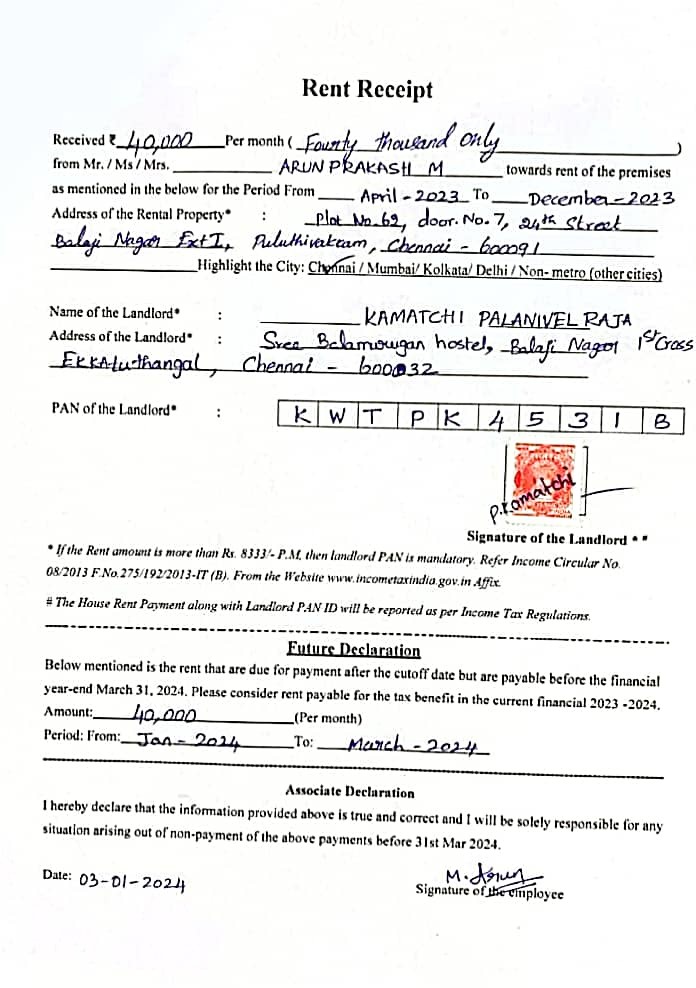 Rent Receipt
Received ₹ 40,000 Per month ( Founty thousand only )
from Mr. / Ms / Mrs. ARUN PRAKASH M towards rent of the premises
as mentioned in the below for the Period From April - 2023 To December - 2023
Address of the Rental Property* : Plot No. 62, door. No. 7, 24th Street
Balaji Nagar Ext I, Puluthivakcam, Chennai - 600091
Highlight the City: Chennai / Mumbai/ Kolkata/ Delhi / Non- metro (other cities)
Name of the Landlord* : KAMATCHI PALANIVEL RAJA
Address of the Landlord* : Sree Balamougan hostel, Balaji Nagar 1st Cross
Ekkatuthangal, Chennai - 600032
PAN of the Landlord* : K W T P K 4 5 3 1 B
P. Kamatchi
Signature of the Landlord * *
* If the Rent amount is more than Rs. 8333/- P.M, then landlord PAN is mandatory. Refer Income Circular No.
08/2013 F.No.275/192/2013-IT (B). From the Website www.incometaxindia.gov.in Affix.
# The House Rent Payment along with Landlord PAN ID will be reported as per Income Tax Regulations.
Future Declaration
Below mentioned is the rent that are due for payment after the cutoff date but are payable before the financial
year-end March 31, 2024. Please consider rent payable for the tax benefit in the current financial 2023 -2024.
Amount: 40,000 (Per month)
Period: From: Jan - 2024 To: March - 2024
Associate Declaration
I hereby declare that the information provided above is true and correct and I will be solely responsible for any
situation arising out of non-payment of the above payments before 31st Mar 2024.
Date: 03-01-2024 M. Arun
Signature of the employee